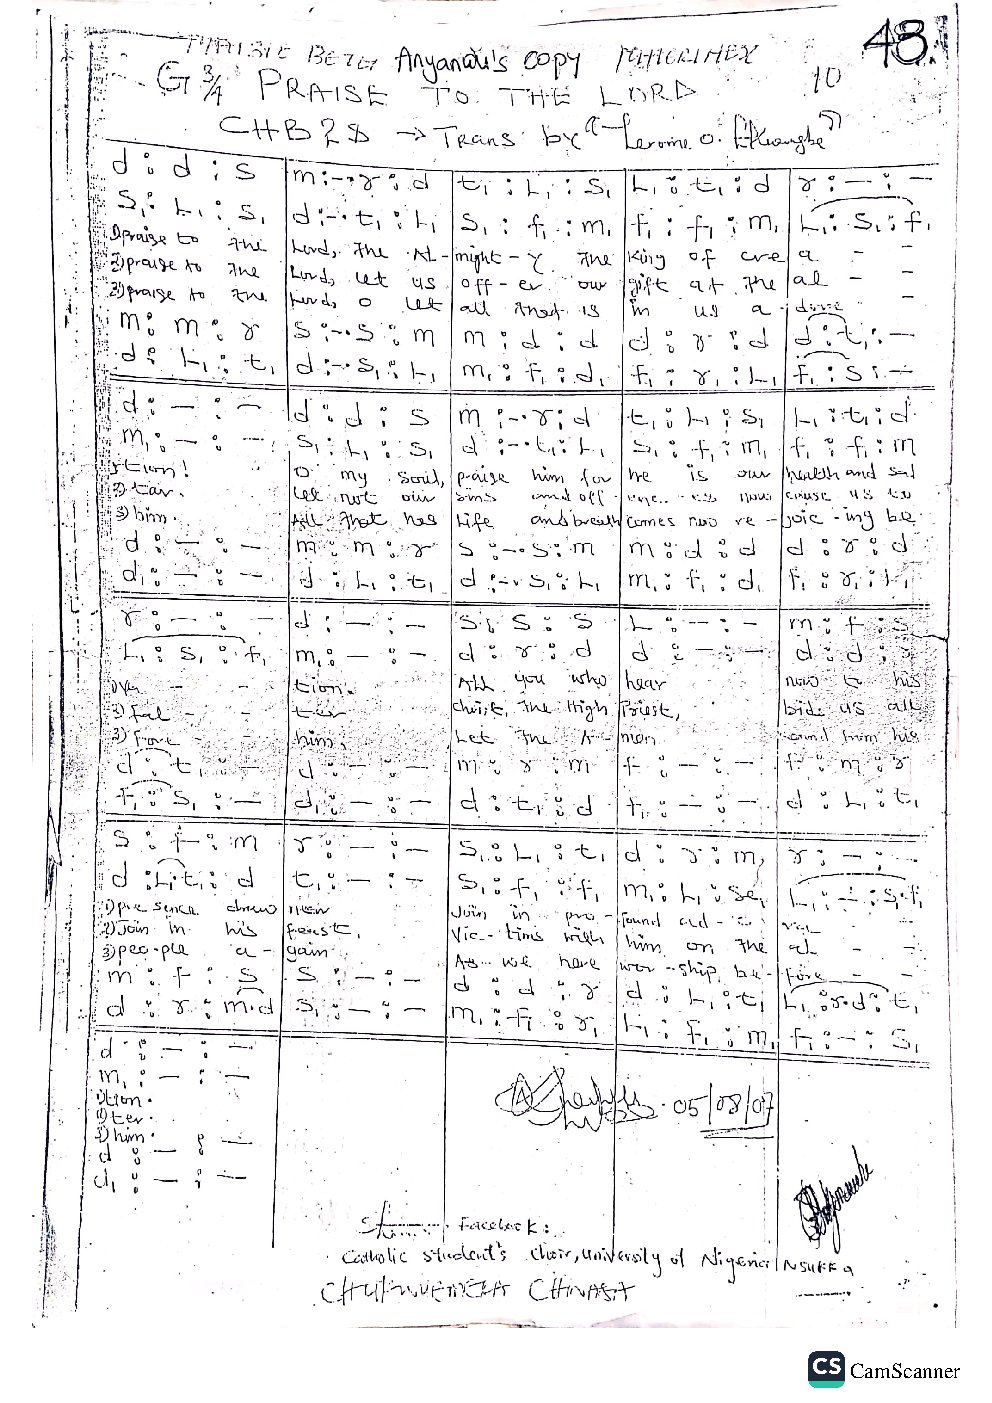 Anyanwu's copy
48.
10
G 3/4 PRAISE TO THE LORD
CHB 28 → Trans by "Jerome O.
d : d : s | m :-. r : d | t₁ : L₁ : s₁ | L₁ : t₁ : d | r : — : —
s₁ : L₁ : s₁ | d :-. t₁ : L₁ | s₁ : f₁ : m₁ | f₁ : f₁ : m₁ | L₁ : s₁ : f₁
1) praise to the | Lord, the Al- | might - y the | King of cre | a - -
2) praise to the | Lord, let us | off - er our | gift at the | al - -
3) praise to the | Lord, O let | all that is | in us a- | dore -
m : m : r | s :-. s : m | m : d : d | d : r : d | d : t₁ : —
d : L₁ : t₁ | d :-. s₁ : L₁ | m₁ : f₁ : d₁ | f₁ : r₁ : L₁ | f₁ : s₁ : —
d : — : — | d : d : s | m :-. r : d | t₁ : L₁ : s₁ | L₁ : t₁ : d
m₁ : — : — | s₁ : L₁ : s₁ | d :-. t₁ : L₁ | s₁ : f₁ : m₁ | f₁ : f₁ : m
1) tion! | O my soul, | praise him for | he is our | health and sal
2) tar. | Let not our | sins and off | ence now | cause us to
3) him. | All that has | Life and breath | comes now re - | joic - ing be
d : — : — | m : m : r | s :-. s : m | m : d : d | d : r : d
d₁ : — : — | d : L₁ : t₁ | d :-. s₁ : L₁ | m₁ : f₁ : d₁ | f₁ : r₁ : L₁
r : — : — | d : — : — | s : s : s | L : — : — | m : f : s
L₁ : s₁ : f₁ | m₁ : — : — | d : r : d | d : — : — | d : d :
1) va - - | tion. | All you who | hear | now to his
2) fal - - | ter | Christ, the High | Priest, | bids us all
3) fore - - | him. | Let the A- | men | sound from his
d : t₁ : — | d : — : — | m : r : m | f : — : — | f : m : r
f₁ : s₁ : — | d₁ : — : — | d : t₁ : d | f₁ : — : — | d : L₁ : t₁
s : f : m | r : — : — | s₁ : L₁ : t₁ | d : r : m, | r : — : —
d : L₁ t₁ : d | t₁ : — : — | s₁ : f₁ : f₁ | m₁ : L₁ : se₁ | L₁ : — : s₁.f₁
1) pre sence draw | near | Join in pro- | found ad - o | ra -
2) Join in his | feast, | Vic - tims with | him on the | al - -
3) peo - ple a - | gain | As we here | wor - ship, be- | fore - -
m : f : s | s : — : — | d : d : r | d : L₁ : t₁ | L₁ : r.d : t₁
d : r : m.d | s₁ : — : — | m₁ : f₁ : r₁ | L₁ : f₁ : m₁ | f₁ : — : s₁
d : — : —
m₁ : — : —
1) tion.
2) ter.
3) him.
d : — : —
d₁ : — : —
05/08/07
Facebook:
Catholic student's choir, university of Nigeria Nsukka
CHUKWUEMEKA CHINASA
CS CamScanner